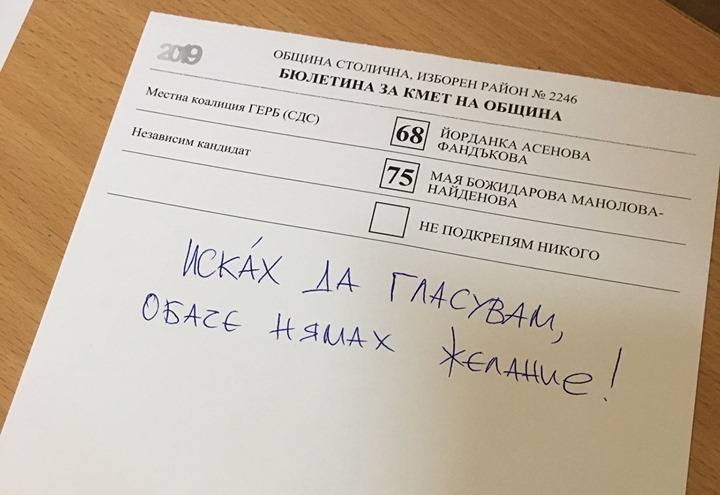 2019
ОБЩИНА СТОЛИЧНА, ИЗБОРЕН РАЙОН № 2246
БЮЛЕТИНА ЗА КМЕТ НА ОБЩИНА
Местна коалиция ГЕРБ (СДС)
68
ЙОРДАНКА АСЕНОВА
ФАНДЪКОВА
Независим кандидат
75
МАЯ БОЖИДАРОВА МАНОЛОВА-
НАЙДЕНОВА
НЕ ПОДКРЕПЯМ НИКОГО
ИСКА́Х ДА ГЛАСУВАМ,
ОБАЧЕ НЯМАХ ЖЕЛАНИЕ!